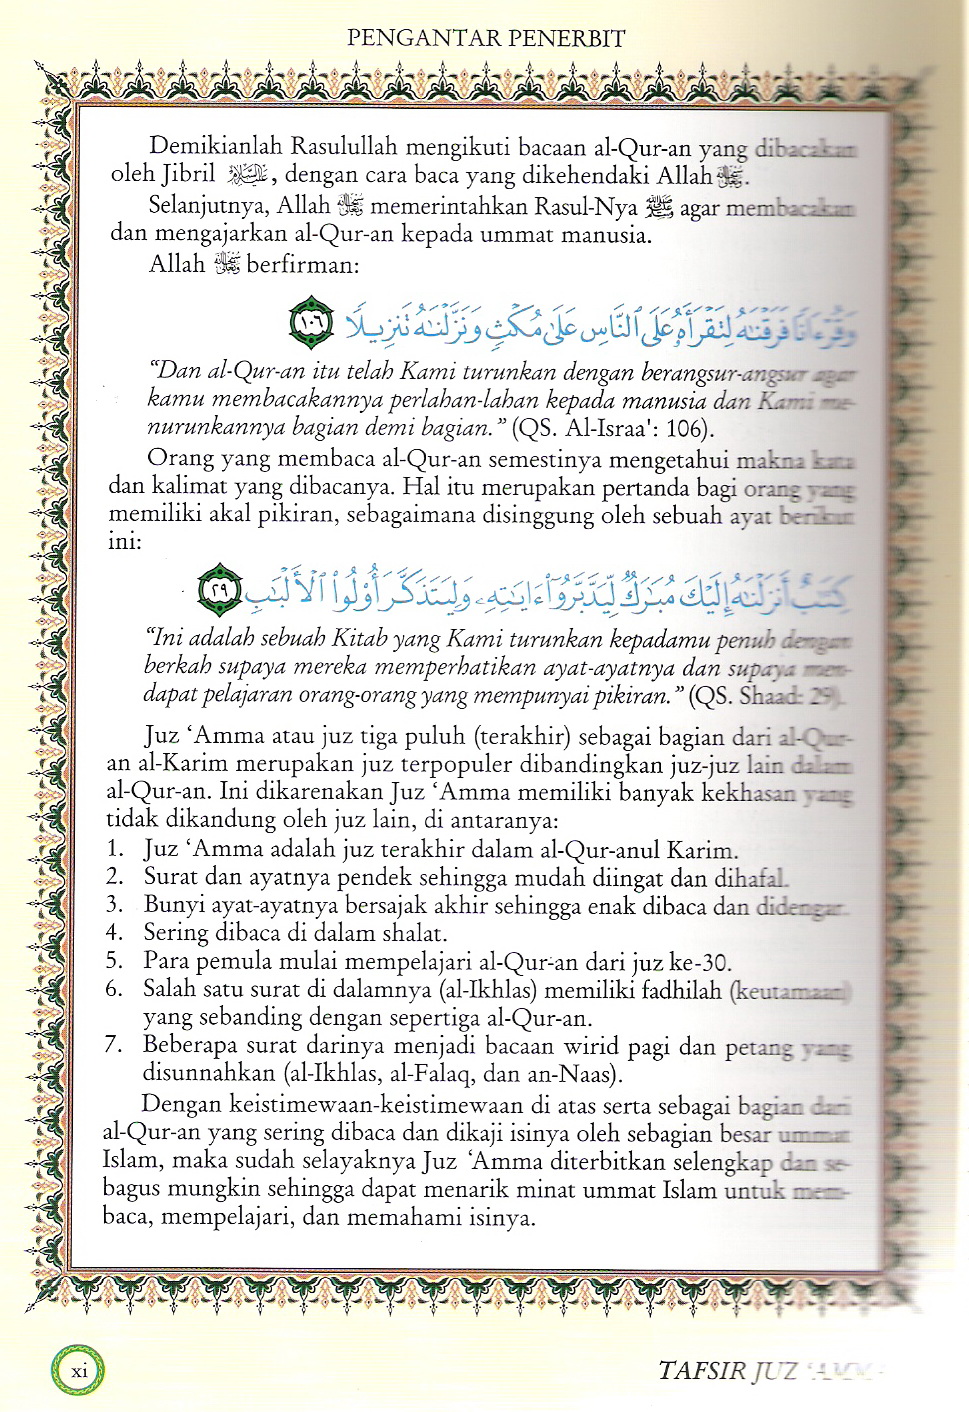 PENGANTAR PENERBIT
Demikianlah Rasulullah mengikuti bacaan al-Qur-an yang dibacakan
oleh Jibril عليه السلام, dengan cara baca yang dikehendaki Allah ﷻ.
Selanjutnya, Allah ﷻ memerintahkan Rasul-Nya ﷺ agar membacakan
dan mengajarkan al-Qur-an kepada ummat manusia.
Allah ﷻ berfirman:
وَقُرْءَانًا فَرَقْنَٰهُ لِتَقْرَأَهُۥ عَلَى ٱلنَّاسِ عَلَىٰ مُكْثٍ وَنَزَّلْنَٰهُ تَنزِيلًا ١٠٦
“Dan al-Qur-an itu telah Kami turunkan dengan berangsur-angsur agar
kamu membacakannya perlahan-lahan kepada manusia dan Kami me-
nurunkannya bagian demi bagian.” (QS. Al-Israa': 106).
Orang yang membaca al-Qur-an semestinya mengetahui makna kata
dan kalimat yang dibacanya. Hal itu merupakan pertanda bagi orang yang
memiliki akal pikiran, sebagaimana disinggung oleh sebuah ayat berikut
ini:
كِتَٰبٌ أَنزَلْنَٰهُ إِلَيْكَ مُبَٰرَكٌ لِّيَدَّبَّرُوٓا۟ ءَايَٰتِهِۦ وَلِيَتَذَكَّرَ أُو۟لُوا۟ ٱلْأَلْبَٰبِ ٢٩
“Ini adalah sebuah Kitab yang Kami turunkan kepadamu penuh dengan
berkah supaya mereka memperhatikan ayat-ayatnya dan supaya men-
dapat pelajaran orang-orang yang mempunyai pikiran.” (QS. Shaad: 29).
Juz ‘Amma atau juz tiga puluh (terakhir) sebagai bagian dari al-Qur-
an al-Karim merupakan juz terpopuler dibandingkan juz-juz lain dalam
al-Qur-an. Ini dikarenakan Juz ‘Amma memiliki banyak kekhasan yang
tidak dikandung oleh juz lain, di antaranya:
1. Juz ‘Amma adalah juz terakhir dalam al-Qur-anul Karim.
2. Surat dan ayatnya pendek sehingga mudah diingat dan dihafal.
3. Bunyi ayat-ayatnya bersajak akhir sehingga enak dibaca dan didengar.
4. Sering dibaca di dalam shalat.
5. Para pemula mulai mempelajari al-Qur-an dari juz ke-30.
6. Salah satu surat di dalamnya (al-Ikhlas) memiliki fadhilah (keutamaan)
yang sebanding dengan sepertiga al-Qur-an.
7. Beberapa surat darinya menjadi bacaan wirid pagi dan petang yang
disunnahkan (al-Ikhlas, al-Falaq, dan an-Naas).
Dengan keistimewaan-keistimewaan di atas serta sebagai bagian dari
al-Qur-an yang sering dibaca dan dikaji isinya oleh sebagian besar ummat
Islam, maka sudah selayaknya Juz ‘Amma diterbitkan selengkap dan se-
bagus mungkin sehingga dapat menarik minat ummat Islam untuk mem-
baca, mempelajari, dan memahami isinya.
xi
TAFSIR JUZ ‘AMMA